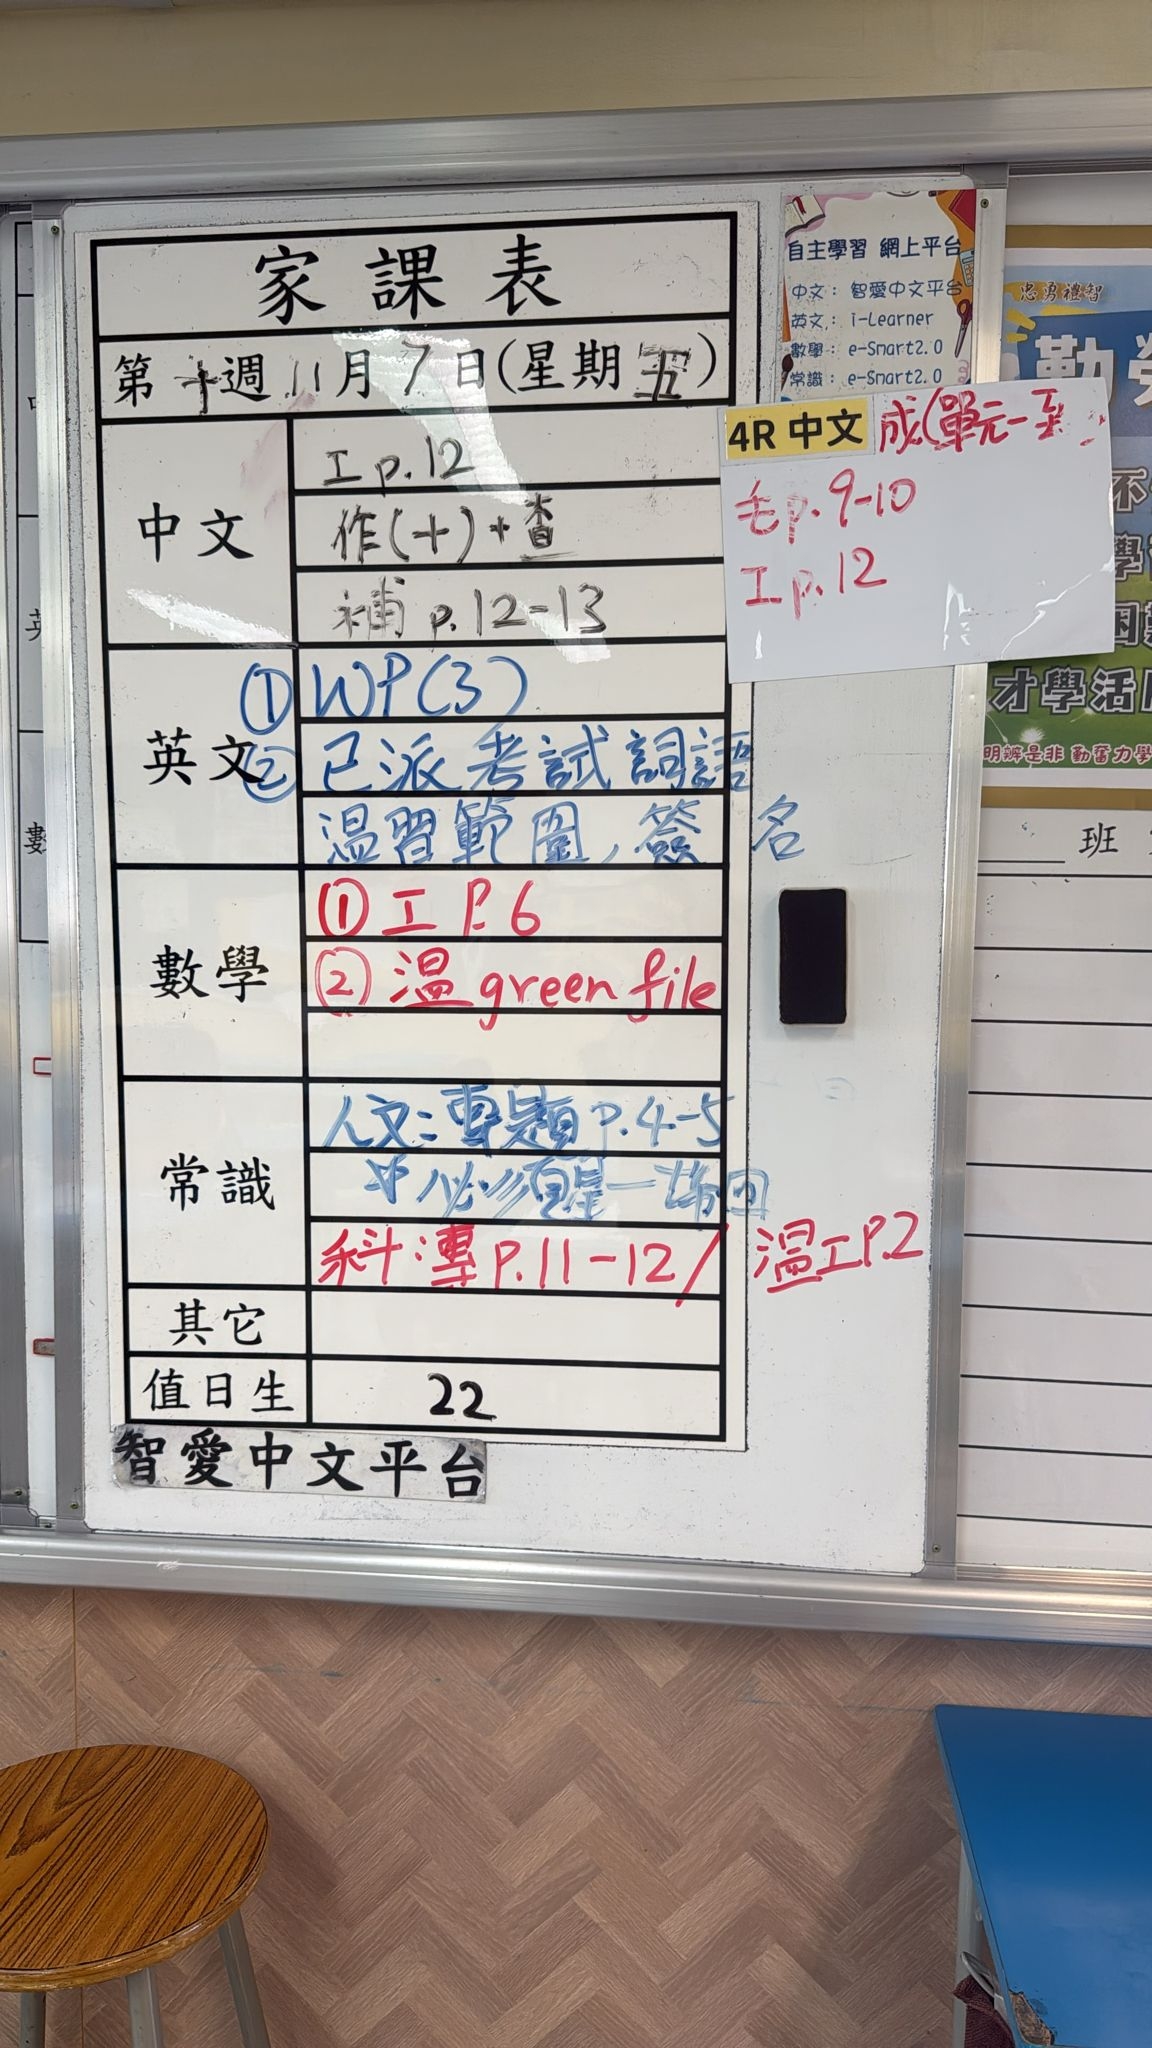 家課表
第十週 11月7日(星期五)
中文
工p.12
作(十)+查
補 p.12-13
英文
① WP(3)
② 已派考試詞語
溫習範圍,簽名
數學
① 工 P.6
② 溫 green file
常識
人文:專題p.4-5
必須
科:專 P.11-12/ 溫工P.2
其它
值日生
22
智愛中文平台
自主學習 網上平台
中文: 智愛中文平台
英文: i-Learner
數學: e-Smart2.0
常識: e-Smart2.0
4R 中文 成(單元一
毛p.9-10
工p.12
忠勇禮智
勤
不
學
困難
才學活
明辨是非 勤奮力學
班
英
數